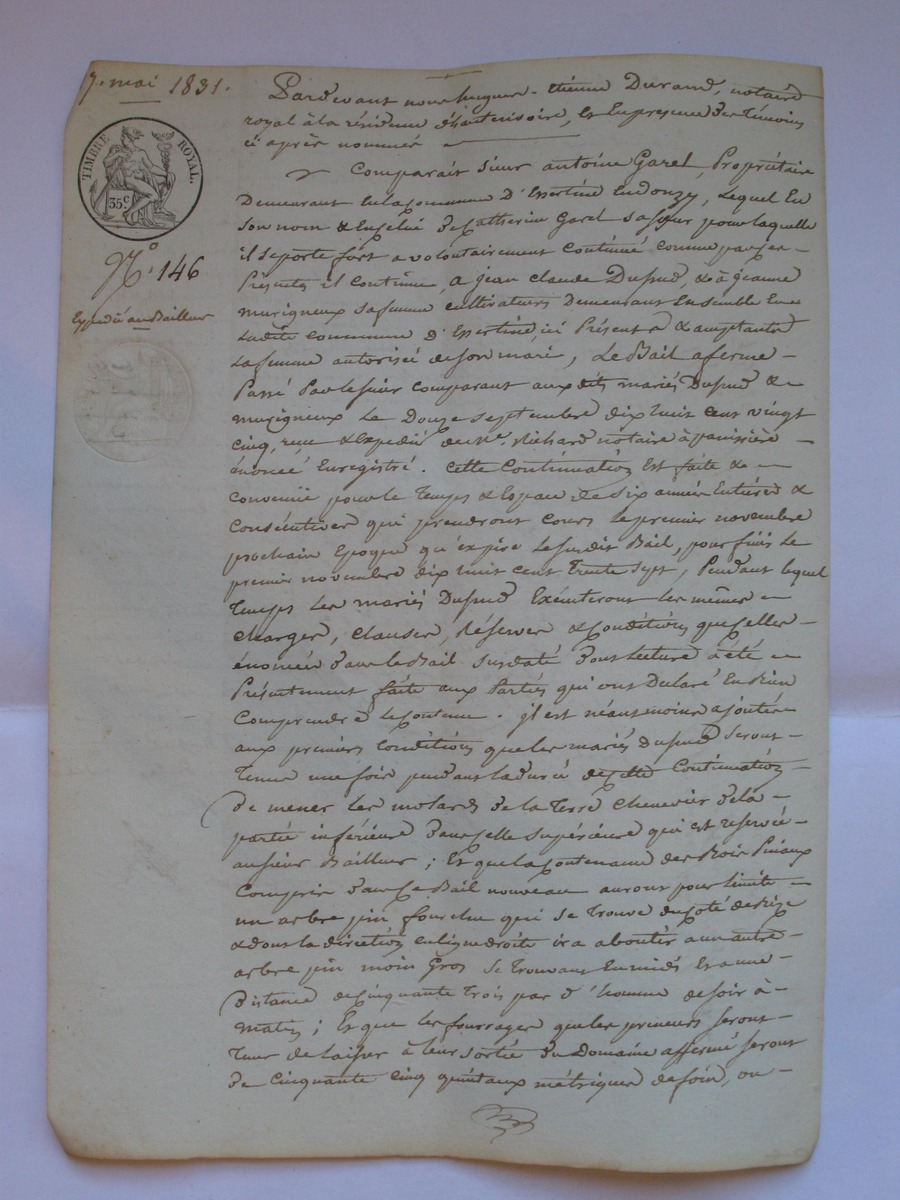 7. mai 1831.
TIMBRE ROYAL.
35c
N° 146
Expédié au Bailleur
Pardevant nous hugues-étienne Durand, notaire
royal à la résidence d'hauterivoire, et en presence des Témoins
ci après nommés
Comparait Sieur antoine Garel, Propriétaire
Demeurant en la Commune D'Essertine Endonzy, Lequel En
Son nom & En celui De Catherine Garel Sa Sœur pour laquelle
il se porte fort a volontairement Continué comme par ces
Présentes il Continue, a jean claude Dupuid, & à jeanne
murigneux sa femme cultivateurs Demeurant Ensemble En
Ladite commune D'Essertine, ici Présents & acceptants
La femme autorisée de son mari, Le Bail a ferme
Passé Par le Sieur Comparant aux dits mariés Dupuid &
murigneux Le Douze Septembre dix huit cent vingt
Cinq, reçu & Expedié de Me Richard notaire à panissière
énoncé Enregistré. Cette Continuation Est faite &
Convenue pour le Temps & Espace de Six années Entières &
Consécutives qui prendront Cours Le premier novembre
prochain Epoque qu'expire Le susdit Bail, pour finir Le
premier novembre dix huit cent Trente Sept, Pendant lequel
Temps Les mariés Dupuid Exécuteront Les mêmes
Charges, Clauses, Réserves & Conditions que celles
énoncées Dans le Bail Susdaté Dont Lecture a été
Présentement faite aux Parties qui ont Déclaré En Bien
Comprendre Le Contenu. il est néantmoins ajouté
aux premières Conditions que les mariés dupuid Seront
Tenus une fois pendant la durée de cette Continuation
De mener Les molards De la Terre Chenevier De la
partie inférieure Dans celle Supérieure qui est reservée
au Sieur Bailleur ; Et que La Contenance des Bois Pinaux
Compris Dans Le Bail nouveau auront pour limite
un arbre pin fourchu qui Se Trouve du Coté de Bize
& dont la direction en ligne droite ira aboutir a un autre
arbre pin moin Gros Se Trouvant En midi Et a une
Distance de Cinquante Trois pas d'homme de Soir à
Matin ; Et que les fourrages que les preneurs Seront
Tenus de laisser à leur Sortie du Domaine affermé Seront
De Cinquante Cinq quintaux métriques de foin, ou